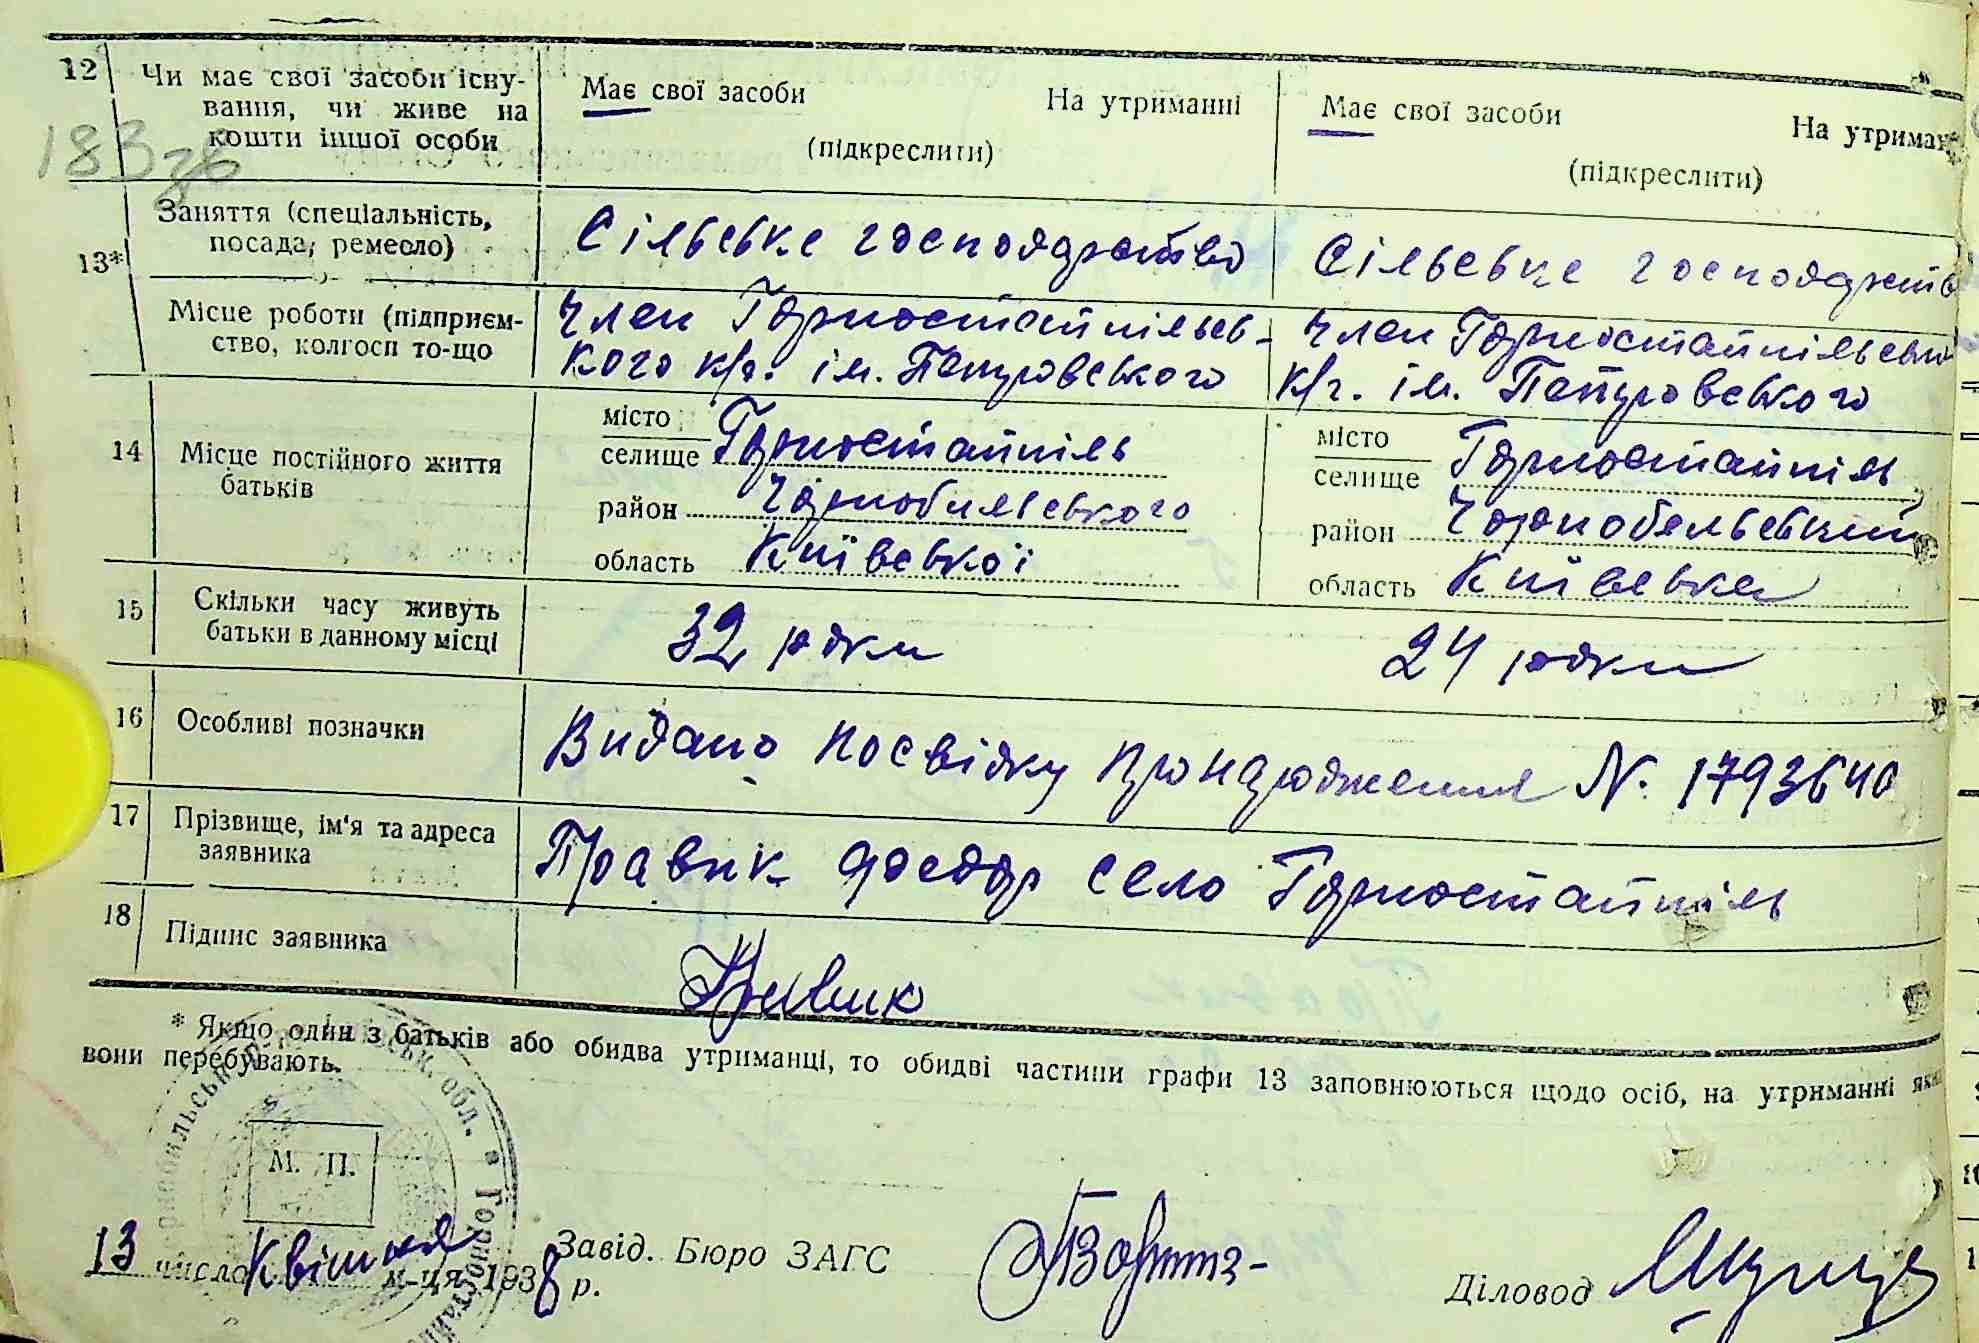 12 Чи має свої засоби існу-
вання, чи живе на
кошти іншої особи
Має свої засоби На утриманні
(підкреслити)
Має свої засоби На утриман
(підкреслити)
183зв
13* Заняття (спеціальність,
посада, ремесло)
Сільське господарство
Сільське господарств
Місце роботи (підприєм-
ство, колгосп то-що
Член Горностайпільсь-
кого к/г. ім. Петровського
Член Горностайпільсько
к/г. ім. Петровського
14 Місце постійного життя
батьків
місто
селище Горностайпіль
район Чорнобильського
область Київської
місто
селище Горностайпіль
район Чорнобильський
область Київська
15 Скільки часу живуть
батьки в данному місці
32 роки
24 роки
16 Особливі позначки
Видано посвідку про народження N. 1793640
17 Прізвище, ім'я та адреса
заявника
Правик село Горностайпіль
18 Підпис заявника
Правик
* Якщо один з батьків або обидва утриманці, то обидві частини графи 13 заповнюються щодо осіб, на утриманні яких
вони перебувають.
М. П.
13 числа Квітня м-ця 1938 р.
Завід. Бюро ЗАГС
Діловод